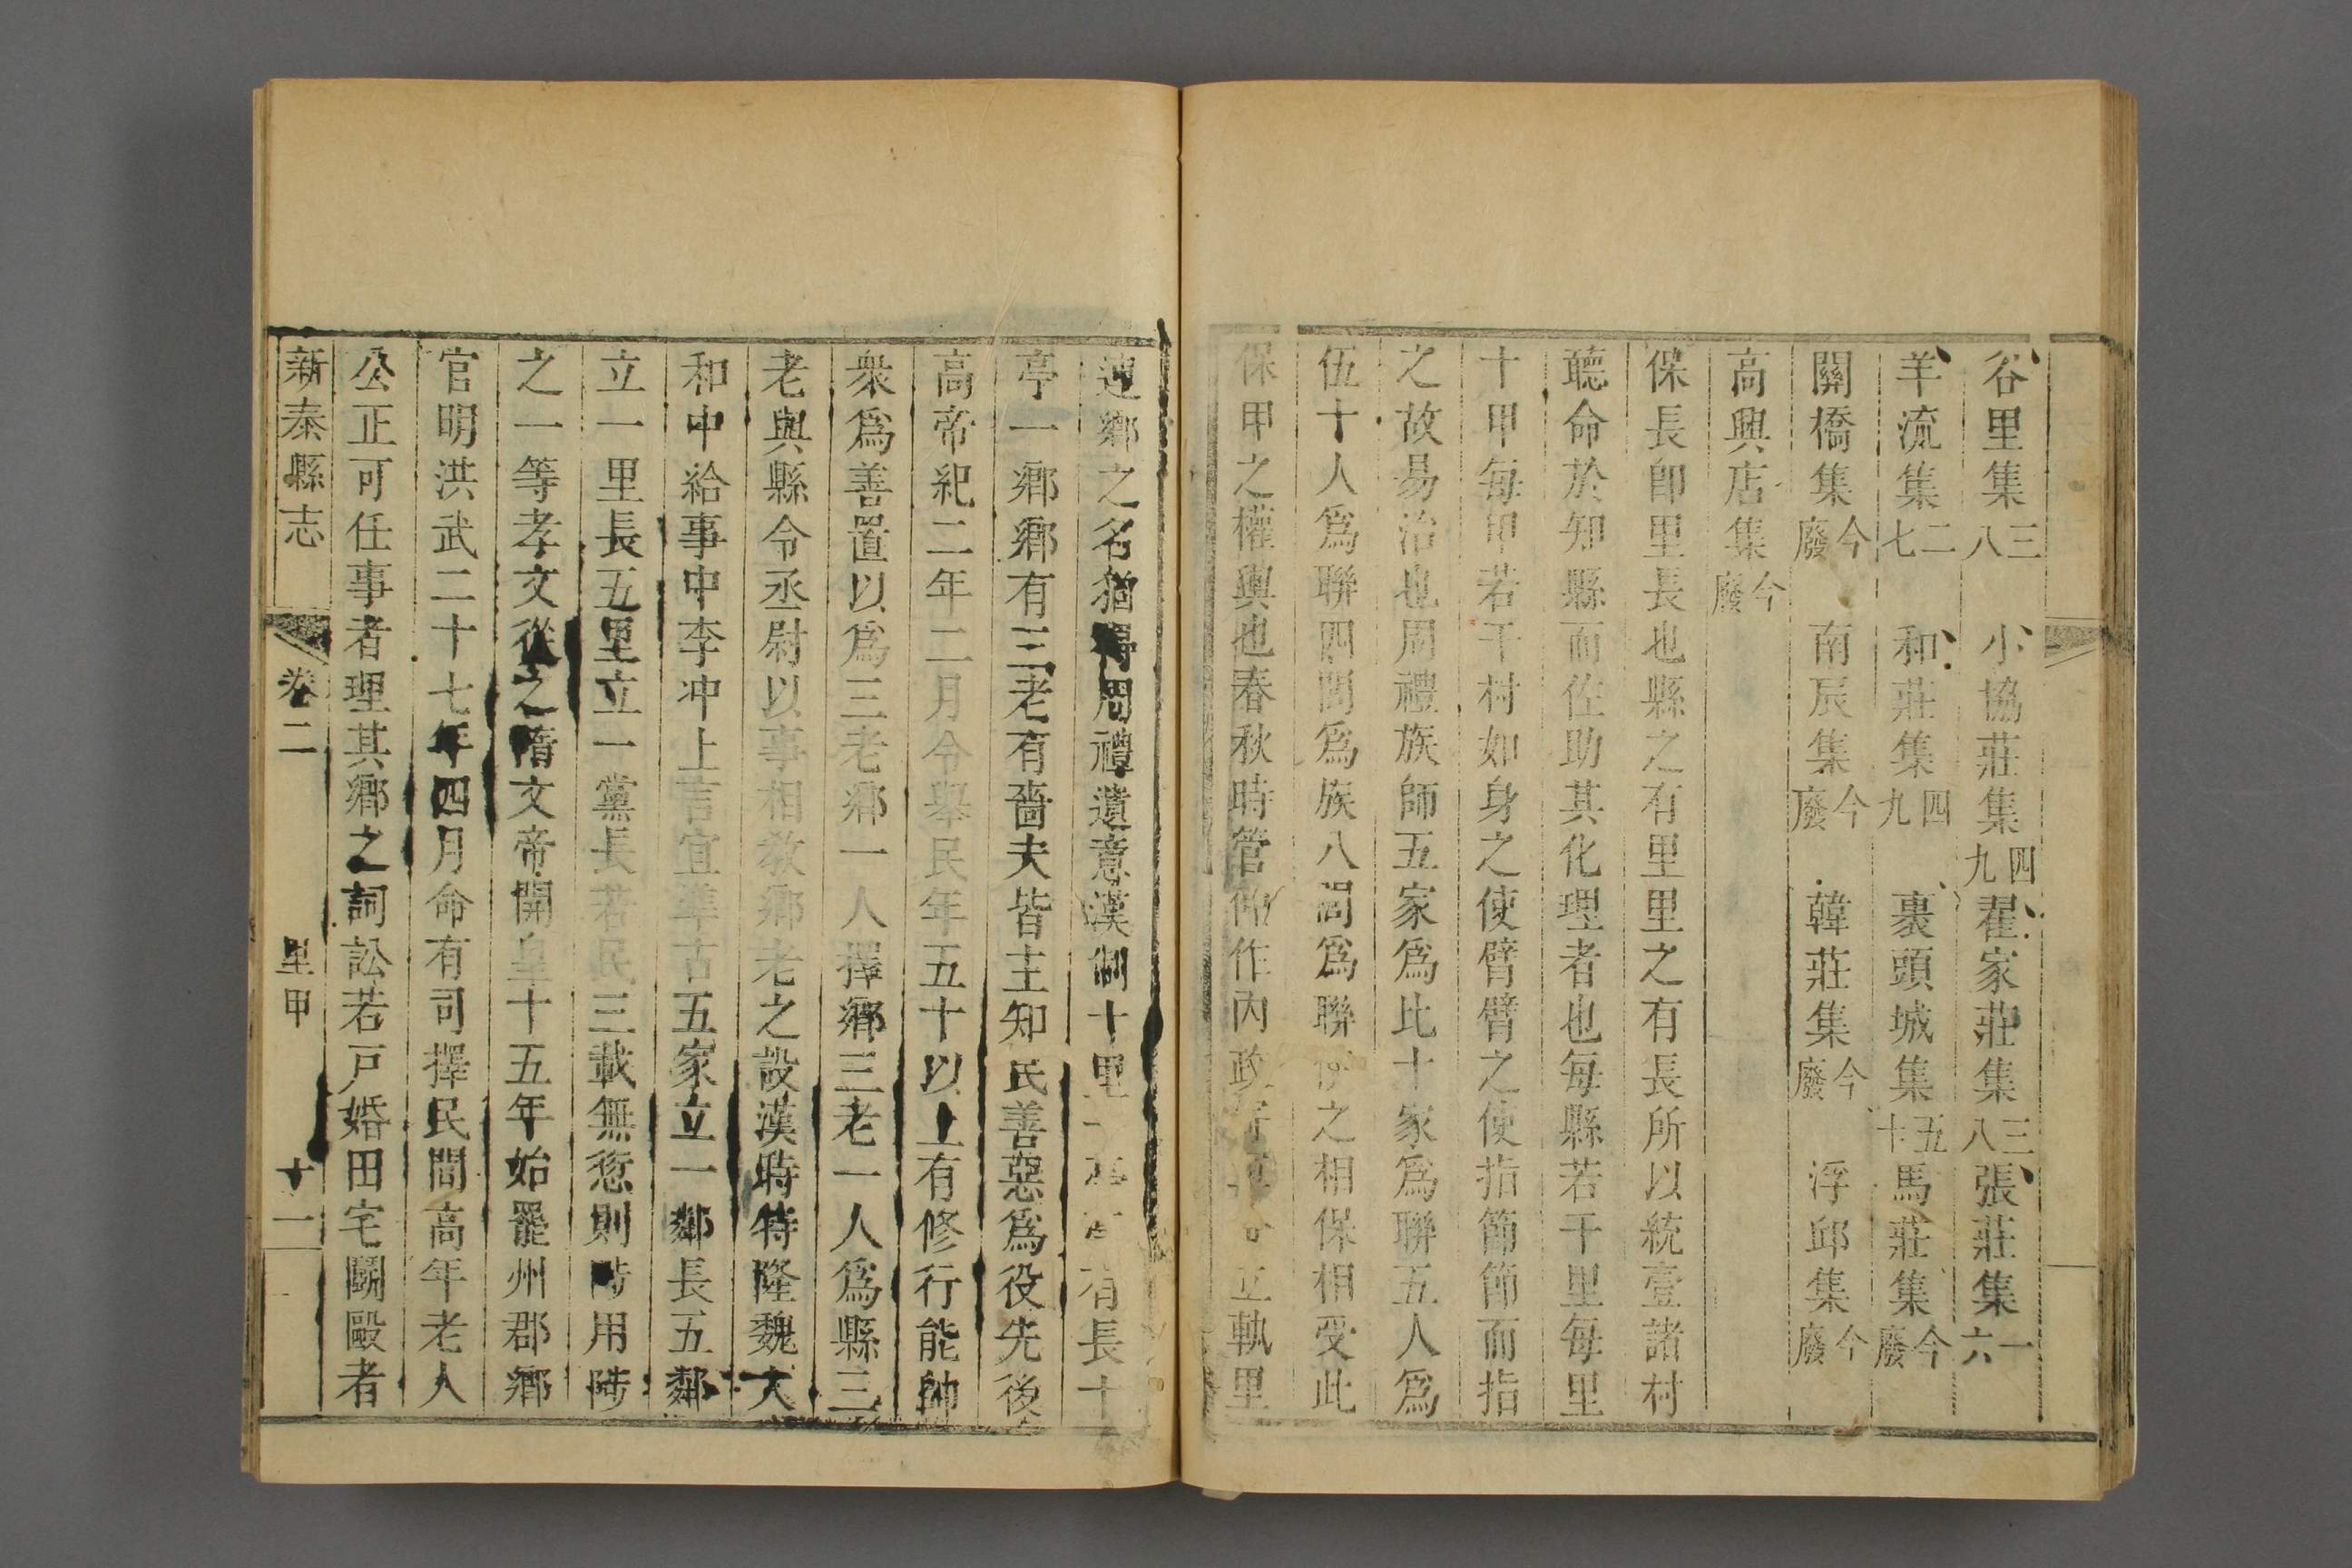 谷里集三八　小協莊集四九翟家莊集三八張莊集一六
羊流集二七　和莊集四九　裏頭城集五十馬莊集今廢
關橋集今廢　南辰集今廢　韓莊集今廢　浮邱集今廢
高興店集今廢
保長卽里長也縣之有里里之有長所以統壹諸村
聽命於知縣而佐助其化理者也每縣若干里每里
十甲每甲若干村如身之使臂臂之使指節節而指
之故易治也周禮族師五家爲比十家爲聯五人爲
伍十人爲聯四閭爲族八閭爲聯之相保相受此
保甲之權輿也春秋時管作內政立軌里
連鄉之名猶得周禮遺意漢制十里一亭有長十
亭一鄉鄉有三老有嗇夫皆主知民善惡爲役先後
高帝紀二年二月令舉民年五十以上有修行能帥
衆爲善置以爲三老鄉一人擇鄉三老一人爲縣三
老與縣令丞尉以事相敎鄉老之設漢時特隆魏太
和中給事中李冲上言宜準古五家立一鄰長五鄰
立一里長五里立一黨長若民三載無愆則陟用陟
之一等孝文從之隋文帝開皇十五年始罷州郡鄉
官明洪武二十七年四月命有司擇民間高年老人
公正可任事者理其鄉之詞訟若戶婚田宅鬭毆者
新泰縣志　卷二　里甲　十一